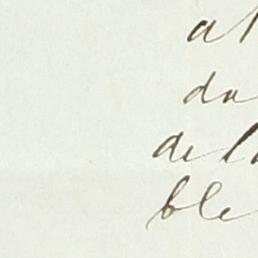 a
da
de l
ble